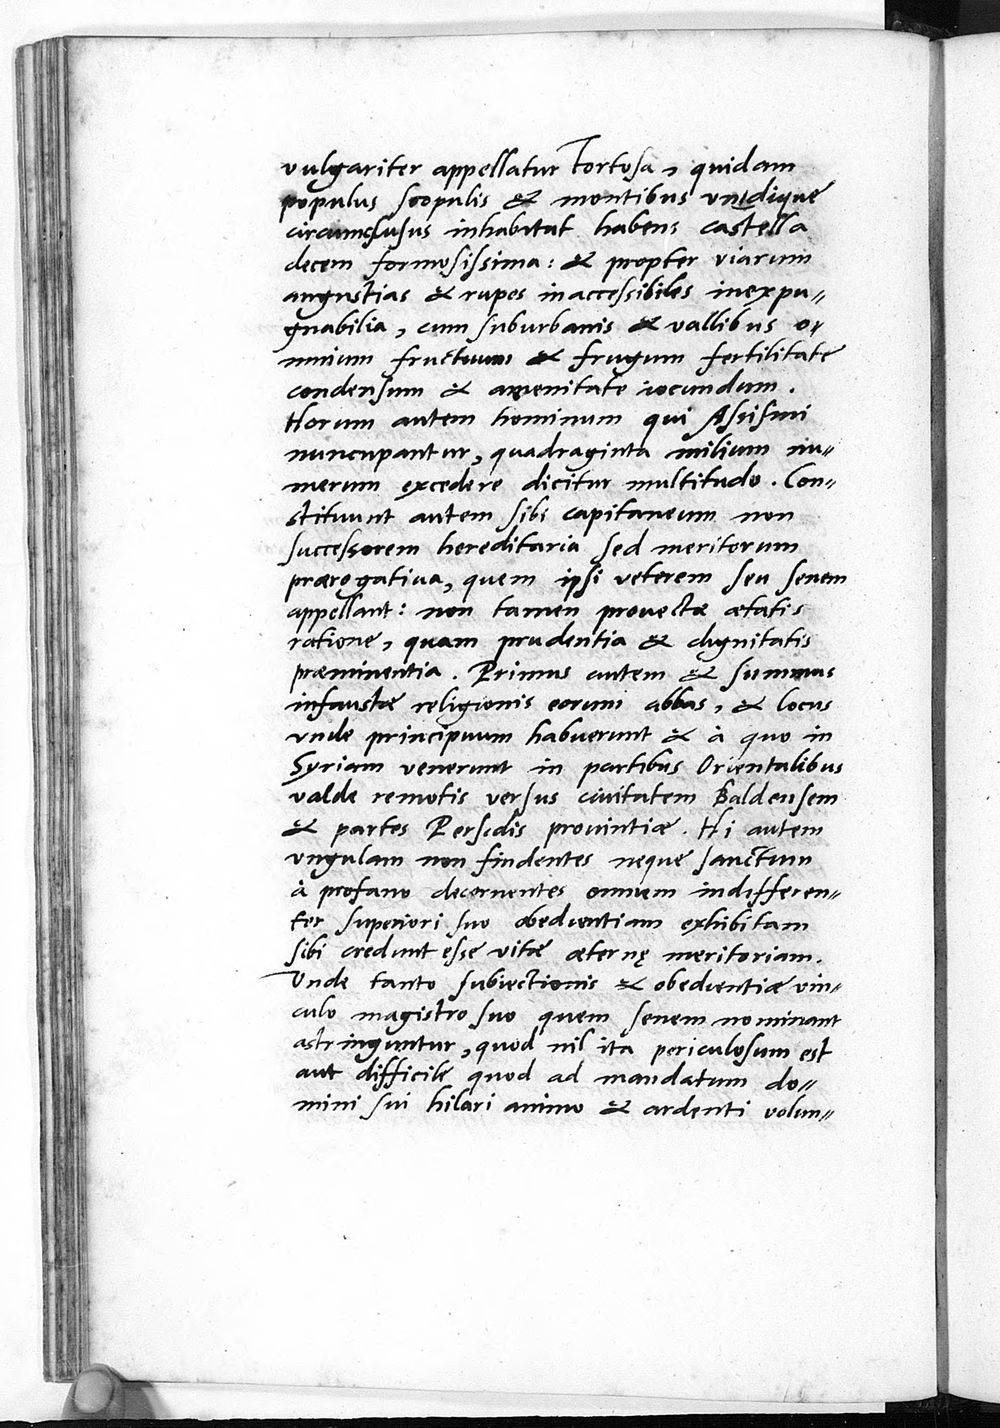 vulgariter appellatur Tortosa, quidam
populus scopulis & montibus vndique
circumclusus inhabitat habens castella
decem formosissima: & propter viarum
angustias & rupes inaccessibiles inexpu„
gnabilia, cum suburbanis & vallibus o„
mnium fructuum & frugum fertilitate
condensum & amenitate iocundum.
Horum autem hominum qui Assisini
nuncupantur, quadraginta milium nu„
merum excedere dicitur multitudo. Con„
stituunt autem sibi capitaneum non
successorem hereditaria sed meritorum
prærogatiua, quem ipsi veterem seu senem
appellant: non tamen prouectæ ætatis
ratione, quam prudentia & dignitatis
præminentia. Primus autem & summus
infaustæ religionis eorum abbas, & locus
vnde principuum habuerunt & à quo in
Syriam venerunt in partibus Orientalibus
valde remotis versus ciuitatem Baldensem
& partes Persidis prouintiæ. Hi autem
vngulam non findentes neque sanctum
à profano decernentes omnem indifferen„
ter superiori suo obedientiam exhibitam
sibi credunt esse vitæ æternę meritoriam.
Unde tanto subiectionis & obedientiæ vin„
culo magistro suo quem senem nominant
astringuntur, quod nil ita periculosum est
aut difficile quod ad mandatum do„
mini sui hilari animo & ardenti volun„